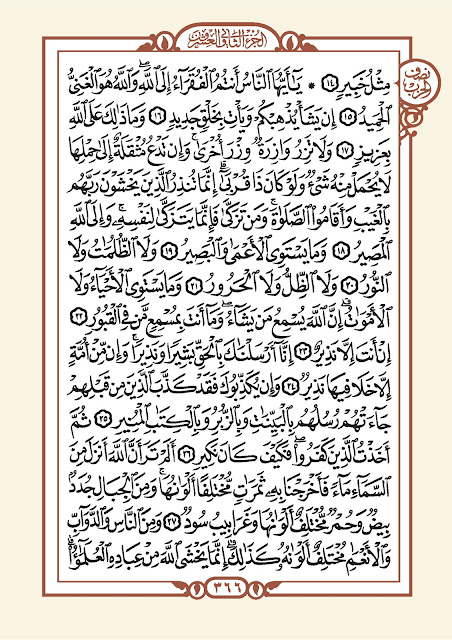 الجزء الثاني والعشرون
نصف
الحزب
مِثْلُ خَبِيرٍ ١٤ ۞ يَـٰٓأَيُّهَا ٱلنَّاسُ أَنتُمُ ٱلْفُقَرَآءُ إِلَى ٱللَّهِ ۖ وَٱللَّهُ هُوَ ٱلْغَنِىُّ
ٱلْحَمِيدُ ١٥ إِن يَشَأْ يُذْهِبْكُمْ وَيَأْتِ بِخَلْقٍ جَدِيدٍ ١٦ وَمَا ذَٰلِكَ عَلَى ٱللَّهِ
بِعَزِيزٍ ١٧ وَلَا تَزِرُ وَازِرَةٌ وِزْرَ أُخْرَىٰ ۚ وَإِن تَدْعُ مُثْقَلَةٌ إِلَىٰ حِمْلِهَا
لَا يُحْمَلْ مِنْهُ شَىْءٌ وَلَوْ كَانَ ذَا قُرْبَىٰٓ ۗ إِنَّمَا تُنذِرُ ٱلَّذِينَ يَخْشَوْنَ رَبَّهُم
بِٱلْغَيْبِ وَأَقَامُوا۟ ٱلصَّلَوٰةَ ۚ وَمَن تَزَكَّىٰ فَإِنَّمَا يَتَزَكَّىٰ لِنَفْسِهِۦ ۚ وَإِلَى ٱللَّهِ
ٱلْمَصِيرُ ١٨ وَمَا يَسْتَوِى ٱلْأَعْمَىٰ وَٱلْبَصِيرُ ١٩ وَلَا ٱلظُّلُمَـٰتُ وَلَا
ٱلنُّورُ ٢٠ وَلَا ٱلظِّلُّ وَلَا ٱلْحَرُورُ ٢١ وَمَا يَسْتَوِى ٱلْأَحْيَآءُ وَلَا
ٱلْأَمْوَٰتُ ۚ إِنَّ ٱللَّهَ يُسْمِعُ مَن يَشَآءُ ۖ وَمَآ أَنتَ بِمُسْمِعٍ مَّن فِى ٱلْقُبُورِ ٢٢
إِنْ أَنتَ إِلَّا نَذِيرٌ ٢٣ إِنَّآ أَرْسَلْنَـٰكَ بِٱلْحَقِّ بَشِيرًا وَنَذِيرًا ۚ وَإِن مِّنْ أُمَّةٍ
إِلَّا خَلَا فِيهَا نَذِيرٌ ٢٤ وَإِن يُكَذِّبُوكَ فَقَدْ كَذَّبَ ٱلَّذِينَ مِن قَبْلِهِمْ
جَآءَتْهُمْ رُسُلُهُم بِٱلْبَيِّنَـٰتِ وَبِٱلزُّبُرِ وَبِٱلْكِتَـٰبِ ٱلْمُنِيرِ ٢٥ ثُمَّ
أَخَذْتُ ٱلَّذِينَ كَفَرُوا۟ ۖ فَكَيْفَ كَانَ نَكِيرِ ٢٦ أَلَمْ تَرَ أَنَّ ٱللَّهَ أَنزَلَ مِنَ
ٱلسَّمَآءِ مَآءً فَأَخْرَجْنَا بِهِۦ ثَمَرَٰتٍ مُّخْتَلِفًا أَلْوَٰنُهَا ۚ وَمِنَ ٱلْجِبَالِ جُدَدٌۢ
بِيضٌ وَحُمْرٌ مُّخْتَلِفٌ أَلْوَٰنُهَا وَغَرَابِيبُ سُودٌ ٢٧ وَمِنَ ٱلنَّاسِ وَٱلدَّوَآبِّ
وَٱلْأَنْعَـٰمِ مُخْتَلِفٌ أَلْوَٰنُهُۥ كَذَٰلِكَ ۗ إِنَّمَا يَخْشَى ٱللَّهَ مِنْ عِبَادِهِ ٱلْعُلَمَـٰٓؤُا۟ ۗ
٣٦٦